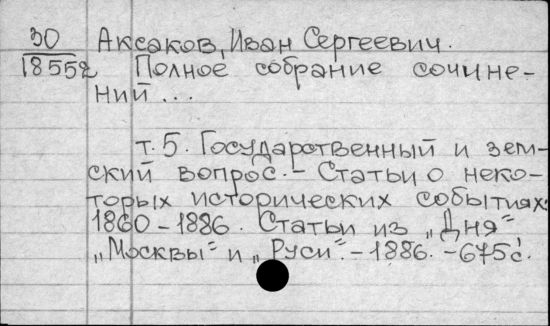 30 Аксаков, Иван Сергеевич.
18552 Полное собрание сочине-
ний ...
т. 5. Государственный и зем-
ский вопрос. - Статьи о неко-
торых исторических событиях.
1860 - 1886. Статьи из „Дня"
„Москвы" и „Руси". - 1886. - 675 с.